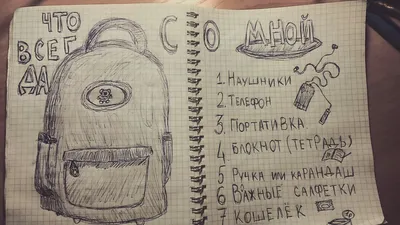 ЧТО
ВСЕГ
ДА
С О МНОЙ
1. НАУШНИКИ
2. ТЕЛЕФОН
3. ПОРТАТИВКА
4 БЛОКНОТ (ТЕТРАДЬ)
5 РУЧКА ИЛИ КАРАНДАШ
6 ВЛАЖНЫЕ САЛФЕТКИ
7 КОШЕЛЁК